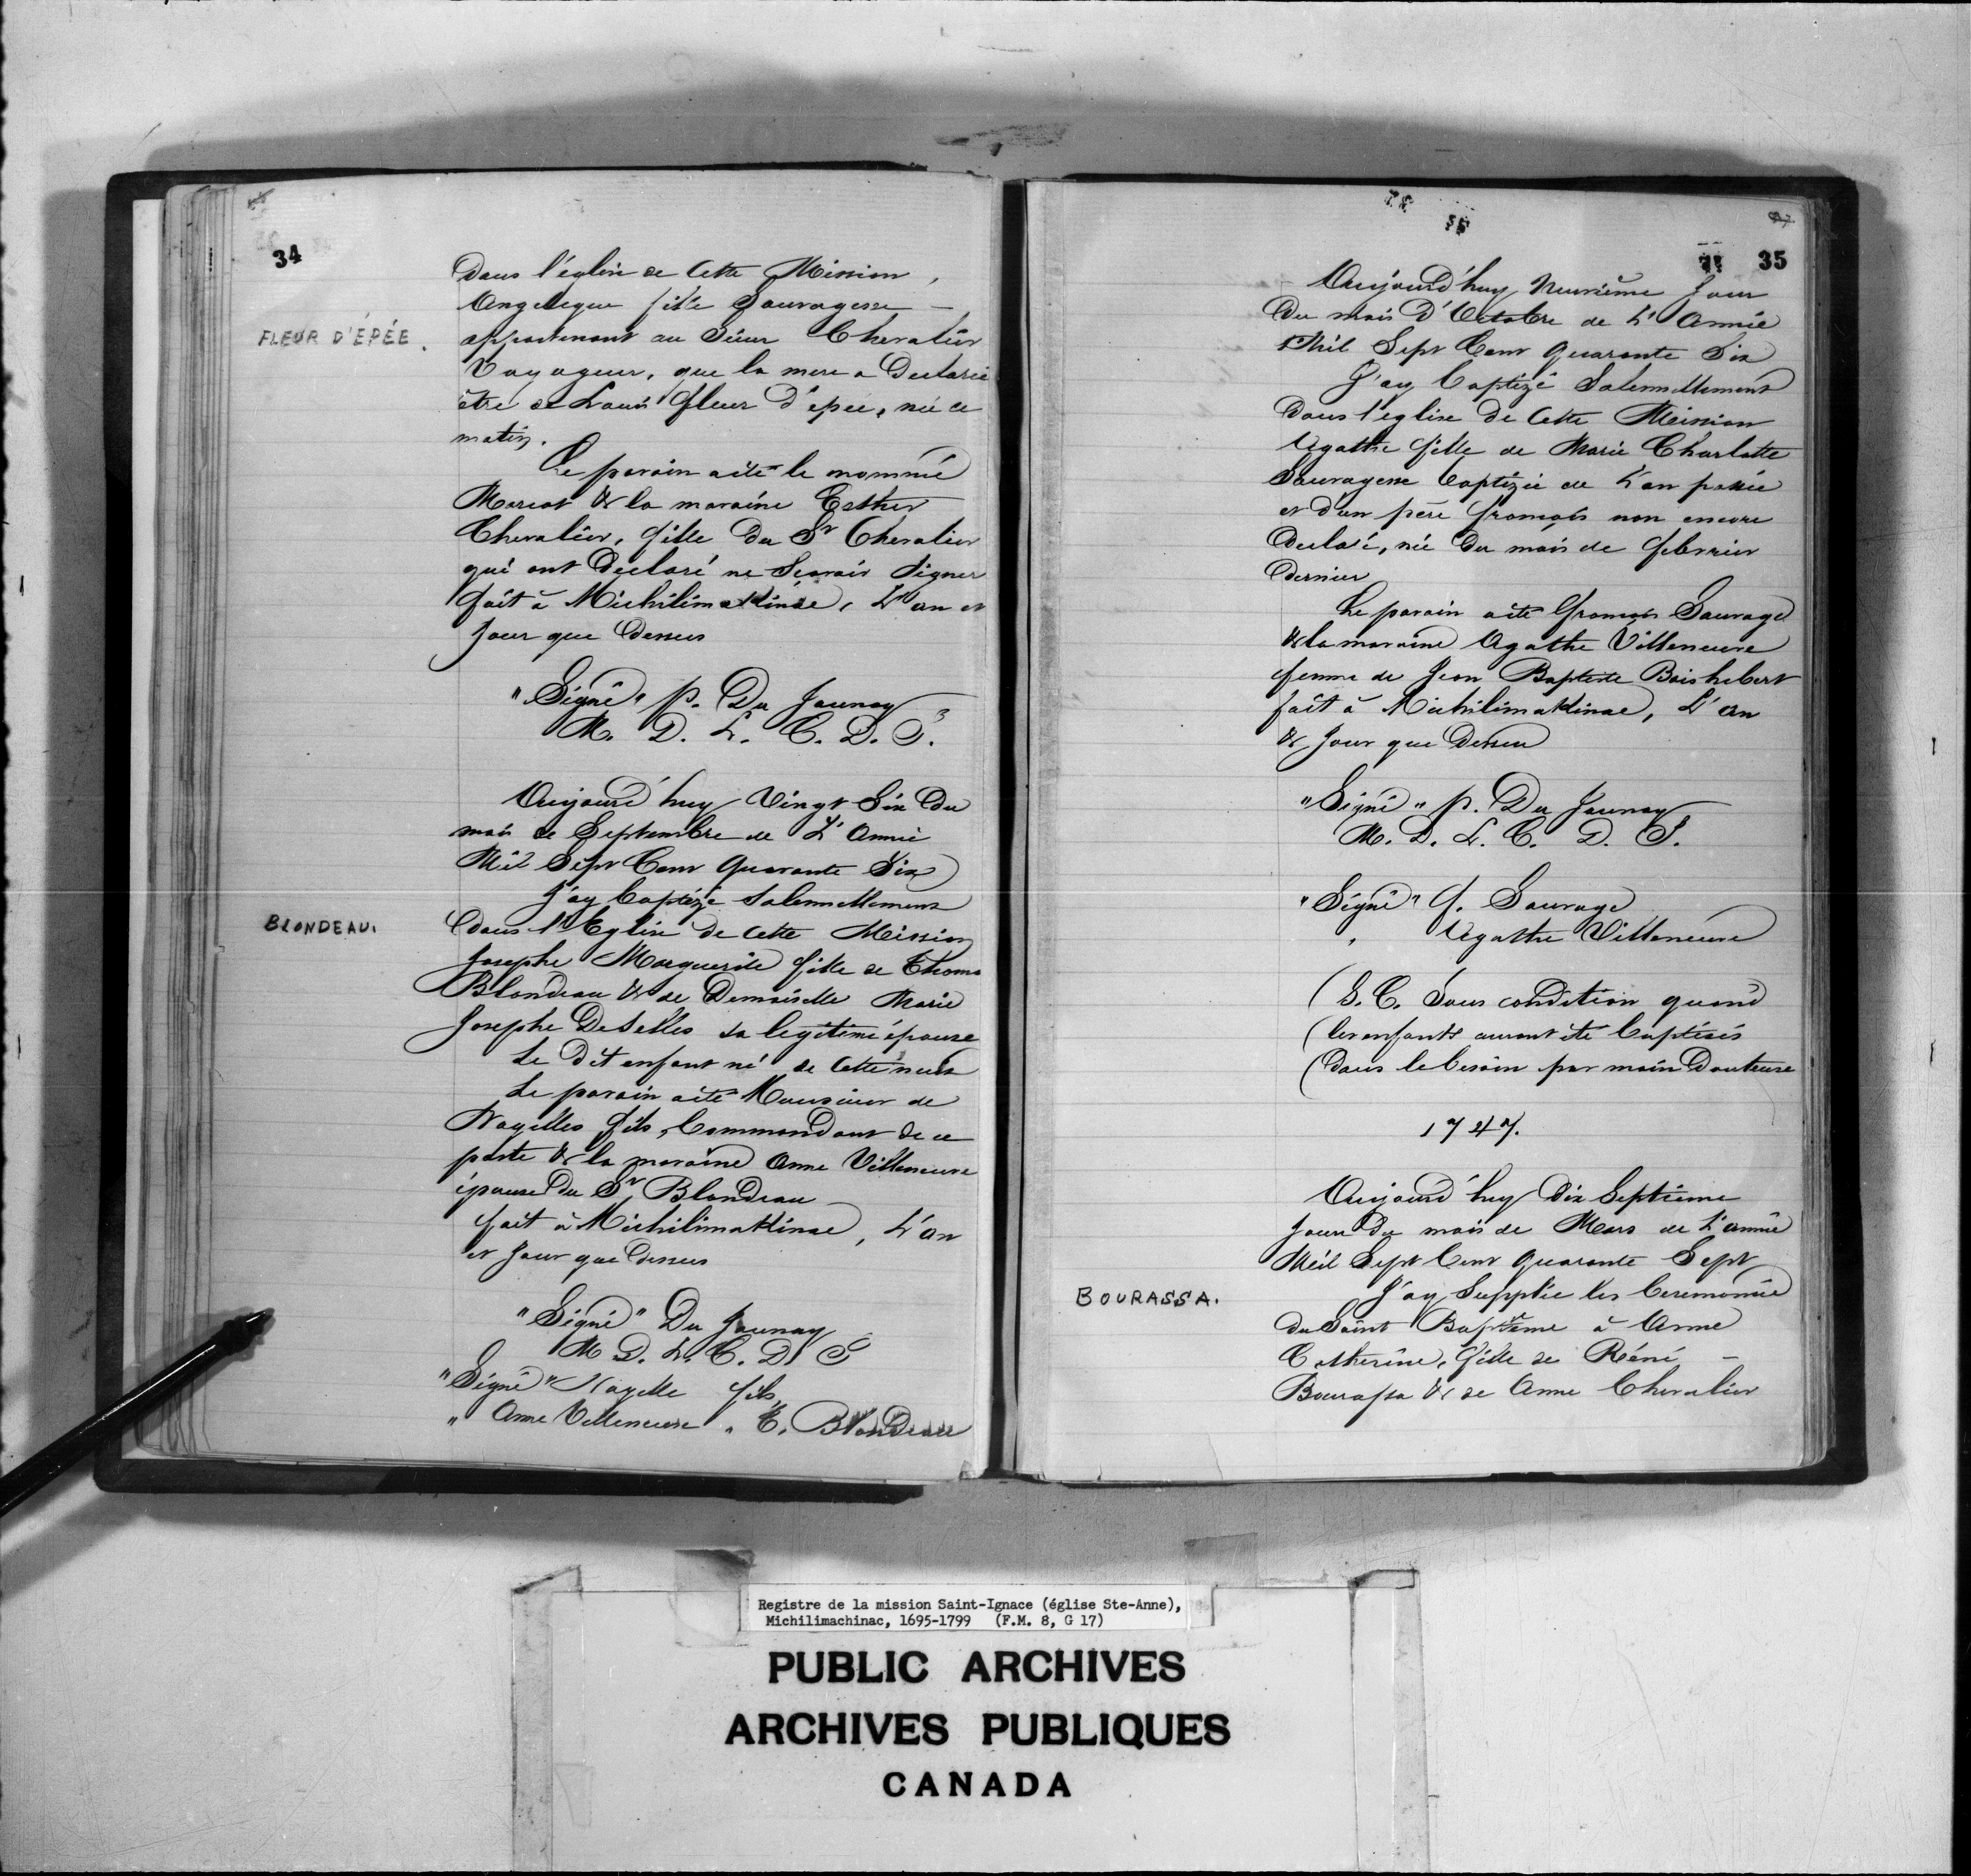 34
Dans l'église de Cette Mission,
Angelique fille Sauvagesse —
FLEUR D'ÉPÉE.
appartenant au Sieur Chevalier
Voyageur, que la mere a Declarée
être de Louis fleur d'épée, née ce
matin.
Le parain a été le nommé
Marcot & la maraine Esther
Chevalier, fille du Sr Chevalier
qui ont Declaré ne Scavoir Signer
fait à Michilimakinac, L'an et
Jour que Dessus
"Signé" p. Du Jaunay
M. D. L. C. D. J.
Aujourd'huy Vingt Six du
mois de Septembre de L'Année
Mil Sept Cent Quarante Six
J'ay baptizé Solennellement
BLONDEAU.
Dans l'Eglise de cette Mission
Josephe Marguerite fille de Thoma
Blondeau & de Demoiselle Marie
Josephe Deselles sa legitime épouse
Le Dit enfant né de cette nuit
Le parain a été Monsieur de
Noyelles fils, Commandant de ce
poste & la maraine Anne Villeneuve
épouse du Sr Blondeau
fait à Michilimakinac, L'an
et Jour que dessus
"Signé" Du Jaunay
M D. L. C. D J
"Signé" Noyelle fils
" Anne Villeneuve " T. Blondeau
35
Aujourd'huy Neuvième Jour
du mois d'Octobre de L'Année
Mil Sept Cent Quarante Six
J'ay baptizé Solennellement
Dans l'église de Cette Mission
Agathe fille de Marie Charlotte
Sauvagesse baptizée de L'an passée
et d'un père françois non encore
Declaré, née du mois de febvrier
dernier
Le parain a été François Sauvage
& la maraine Agathe Villeneuve
femme de Jean Baptiste Boishebert
fait à Michilimakinac, L'an
& Jour que Dessu
"Signé" p. Du Jaunay
M. D. L. C. D. J.
"Signé" f. Sauvage
" Agathe Villeneuve
(S. C. Sous condition quand
(les enfants auront été baptisés
(dans le besoin par main Douteuse
1747.
Aujourd'huy Dix Septieme
Jour du mois de Mars de L'année
Mil Sept Cent Quarante Sept
BOURASSA.
J'ay Supplée les Ceremonie
du Saint Baptême à Anne
Catherine, fille de Réné —
Bourassa & de Anne Chevalier
Registre de la mission Saint-Ignace (église Ste-Anne),
Michilimachinac, 1695-1799 (F.M. 8, G 17)
PUBLIC ARCHIVES
ARCHIVES PUBLIQUES
CANADA